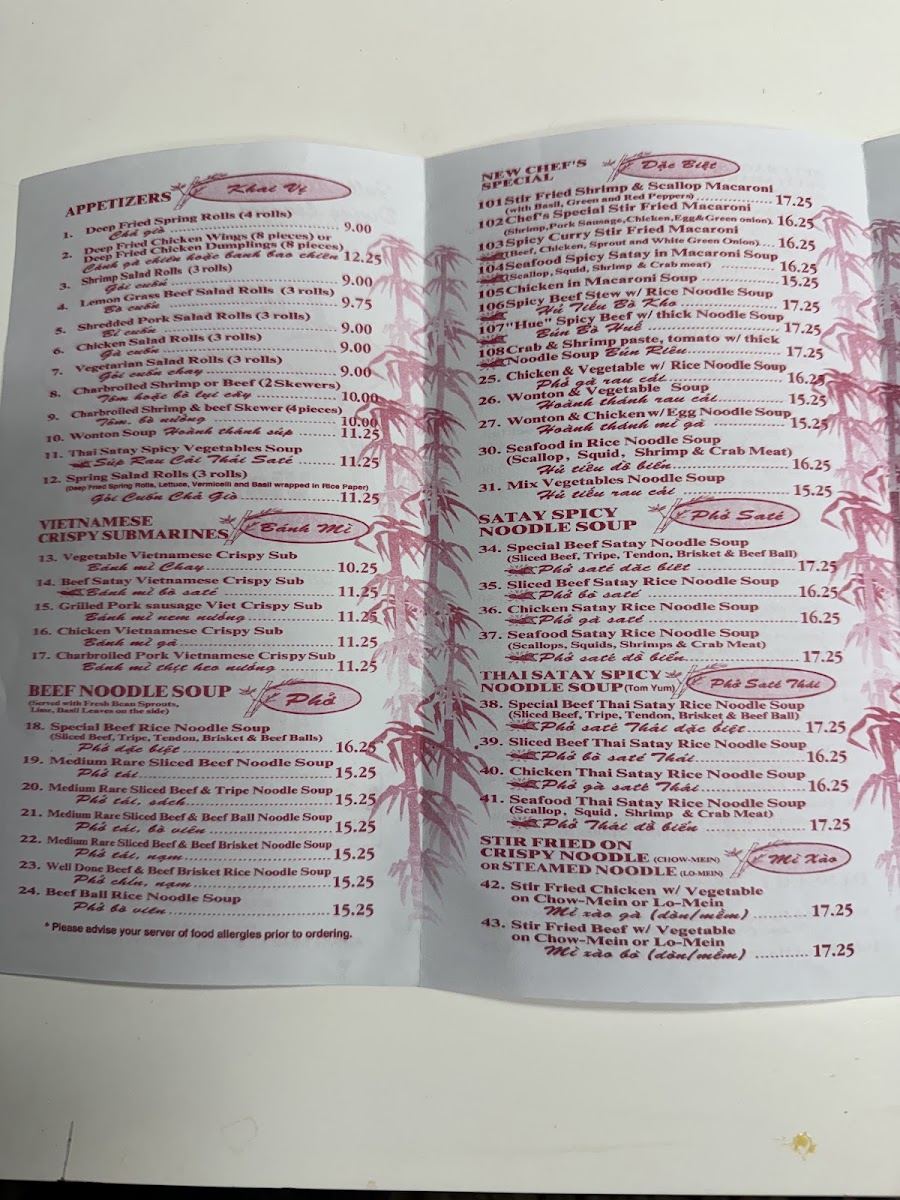 APPETIZERS Khai Vị
1. Deep Fried Spring Rolls (4 rolls)
Chả giò 9.00
2. Deep Fried Chicken Wings (8 pieces) or
Deep Fried Chicken Dumplings (8 pieces)
Cánh gà chiên hoặc banh bao chiên 12.25
3. Shrimp Salad Rolls (3 rolls)
Gỏi cuốn 9.00
4. Lemon Grass Beef Salad Rolls (3 rolls)
Bò cuốn 9.75
5. Shredded Pork Salad Rolls (3 rolls)
Bì cuốn 9.00
6. Chicken Salad Rolls (3 rolls)
Gà cuốn 9.00
7. Vegetarian Salad Rolls (3 rolls)
Gỏi cuốn chay 9.00
8. Charbroiled Shrimp or Beef (2 Skewers)
Tôm hoặc bò lụi cây 10.00
9. Charbroiled Shrimp & beef Skewer (4 pieces)
Tôm, bò nướng 10.00
10. Wonton Soup Hoành thánh súp 11.25
11. Thai Satay Spicy Vegetables Soup
Súp Rau Cải Thái Saté 11.25
12. Spring Salad Rolls (3 rolls)
(Deep Fried Spring Rolls, Lettuce, Vermicelli and Basil wrapped in Rice Paper)
Gỏi Cuốn Chả Giò 11.25
VIETNAMESE
CRISPY SUBMARINES Bánh Mì
13. Vegetable Vietnamese Crispy Sub
Bánh mì Chay 10.25
14. Beef Satay Vietnamese Crispy Sub
Bánh mì bò saté 11.25
15. Grilled Pork sausage Viet Crispy Sub
Bánh mì nem nướng 11.25
16. Chicken Vietnamese Crispy Sub
Bánh mì gà 11.25
17. Charbroiled Pork Vietnamese Crispy Sub
Bánh mì thịt heo nướng 11.25
BEEF NOODLE SOUP Phở
(Served with Fresh Bean Sprouts,
Lime, Basil Leaves on the side)
18. Special Beef Rice Noodle Soup
(Sliced Beef, Tripe, Tendon, Brisket & Beef Balls)
Phở đặc biệt 16.25
19. Medium Rare Sliced Beef Noodle Soup
Phở tái 15.25
20. Medium Rare Sliced Beef & Tripe Noodle Soup
Phở tái, sách 15.25
21. Medium Rare Sliced Beef & Beef Ball Noodle Soup
Phở tái, bò viên 15.25
22. Medium Rare Sliced Beef & Beef Brisket Noodle Soup
Phở tái, nạm 15.25
23. Well Done Beef & Beef Brisket Rice Noodle Soup
Phở chín, nạm 15.25
24. Beef Ball Rice Noodle Soup
Phở bò viên 15.25
* Please advise your server of food allergies prior to ordering.
NEW CHEF'S
SPECIAL Đặc Biệt
101 Stir Fried Shrimp & Scallop Macaroni
(with Basil, Green and Red Peppers) 17.25
102 Chef's Special Stir Fried Macaroni
(Shrimp, Pork Sausage, Chicken, Egg & Green onion) 16.25
103 Spicy Curry Stir Fried Macaroni
(Beef, Chicken, Sprout and White Green Onion) 16.25
104 Seafood Spicy Satay in Macaroni Soup
(Scallop, Squid, Shrimp & Crab meat) 16.25
105 Chicken in Macaroni Soup 15.25
106 Spicy Beef Stew w/ Rice Noodle Soup
Hủ Tiếu Bò Kho 17.25
107 "Hue" Spicy Beef w/ thick Noodle Soup
Bún Bò Huế 17.25
108 Crab & Shrimp paste, tomato w/ thick
Noodle Soup Bún Riêu 17.25
25. Chicken & Vegetable w/ Rice Noodle Soup
Phở gà rau cải 16.25
26. Wonton & Vegetable Soup
Hoành thánh rau cải 15.25
27. Wonton & Chicken w/ Egg Noodle Soup
Hoành thánh mì gà 15.25
30. Seafood in Rice Noodle Soup
(Scallop, Squid, Shrimp & Crab Meat)
Hủ tiếu đồ biển 16.25
31. Mix Vegetables Noodle Soup
Hủ tiếu rau cải 15.25
SATAY SPICY
NOODLE SOUP Phở Saté
34. Special Beef Satay Noodle Soup
(Sliced Beef, Tripe, Tendon, Brisket & Beef Ball)
Phở saté đặc biệt 17.25
35. Sliced Beef Satay Rice Noodle Soup
Phở bò saté 16.25
36. Chicken Satay Rice Noodle Soup
Phở gà saté 16.25
37. Seafood Satay Rice Noodle Soup
(Scallops, Squids, Shrimps & Crab Meat)
Phở saté đồ biển 17.25
THAI SATAY SPICY
NOODLE SOUP (Tom Yum) Phở Saté Thái
38. Special Beef Thai Satay Rice Noodle Soup
(Sliced Beef, Tripe, Tendon, Brisket & Beef Ball)
Phở saté Thái đặc biệt 17.25
39. Sliced Beef Thai Satay Rice Noodle Soup
Phở bò saté Thái 16.25
40. Chicken Thai Satay Rice Noodle Soup
Phở gà saté Thái 16.25
41. Seafood Thai Satay Rice Noodle Soup
(Scallop, Squid, Shrimp & Crab Meat)
Phở Thái đồ biển 17.25
STIR FRIED ON
CRISPY NOODLE (CHOW-MEIN)
OR STEAMED NOODLE (LO-MEIN) Mì Xào
42. Stir Fried Chicken w/ Vegetable
on Chow-Mein or Lo-Mein
Mì xào gà (dòn/mềm) 17.25
43. Stir Fried Beef w/ Vegetable
on Chow-Mein or Lo-Mein
Mì xào bò (dòn/mềm) 17.25